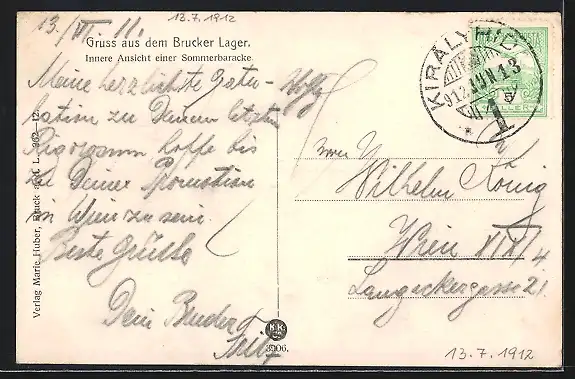 13./VII. 11.
13.7.1912
Gruss aus dem Brucker Lager.
Innere Ansicht einer Sommerbaracke.
Meine herzlichste Gratu-
lation zu Deinem letzten
Rigorosum hoffe bis
zu Deiner Promotion
in Wien zu sein.
Beste Grüsse
Dein Bruder
Fritz
Verlag Marie Huber, Bruck a. d. L. 962 12
K.K.
3906.
KIRÁLYHID
912 JUN 13
1
Wilhelm König
Wien XIX/4
Langackergasse 21
13.7.1912